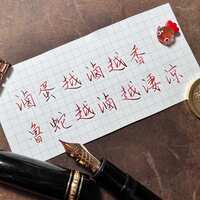 滷蛋越滷越香
魯蛇越滷越淒涼